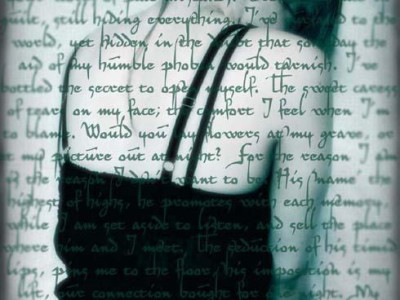 quiet, still hiding everything. to the
world, yet hidden in the that some day the
aid of my humble phobia would tarnish. I've
bottled the secret to open myself. The sweet caress
of tears on my face; the comfort I feel when I'm
to blame. Would you lay flowers at my grave, or
my picture out at night? For the reason I am
reason I don't want to be. His name the
highest of highs, he with each memory.
while I am set aside to listen, and sell the place
where him and I meet. the seduction of his timed
lips, me to the floor, his imposition is my
life, our connection bought for night. My